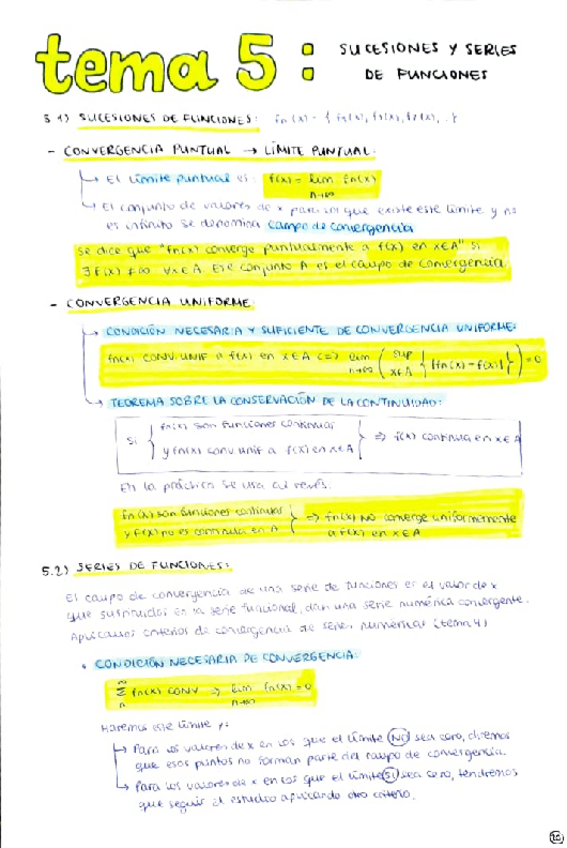 tema 5: SUCESIONES Y SERIES
DE FUNCIONES
5.1) SUCESIONES DE FUNCIONES: fn(x) = { f1(x), f2(x), f3(x), ..}
- CONVERGENCIA PUNTUAL → LÍMITE PUNTUAL:
↳ El límite puntual es: f(x) = lim fn(x)
n→∞
↳ El conjunto de valores de x para los que existe este límite y no
es infinito se denomina campo de convergencia
Se dice que "fn(x) converge puntualmente a f(x) en x∈A" si
∃ f(x) ≠ ∞ ∀x∈A. Ese conjunto A es el campo de convergencia.
- CONVERGENCIA UNIFORME:
↳ CONDICIÓN NECESARIA Y SUFICIENTE DE CONVERGENCIA UNIFORME:
fn(x) CONV. UNIF a f(x) en x∈A <=> lim ( sup { |fn(x) - f(x)| } ) = 0
n→∞ x∈A
↳ TEOREMA SOBRE LA CONSERVACIÓN DE LA CONTINUIDAD:
Si { fn(x) son funciones continuas
y fn(x) conv. unif a f(x) en x∈A } => f(x) continua en x∈A
En la práctica se usa al revés:
fn(x) son funciones continuas } => fn(x) NO converge uniformemente
y f(x) no es continua en A a f(x) en x∈A
5.2) SERIES DE FUNCIONES:
El campo de convergencia de una serie de funciones es el valor de x
que sustituidos en la serie funcional, dan una serie numérica convergente.
Aplicamos criterios de convergencia de series numéricas (tema 4)
• CONDICIÓN NECESARIA DE CONVERGENCIA:
∞
Σ fn(x) CONV => lim fn(x) = 0
n n→∞
Haremos este límite y:
↳ Para los valores de x en los que el límite NO sea cero, diremos
que esos puntos no forman parte del campo de convergencia.
↳ Para los valores de x en los que el límite SI sea cero, tendremos
que seguir el estudio aplicando otro criterio.